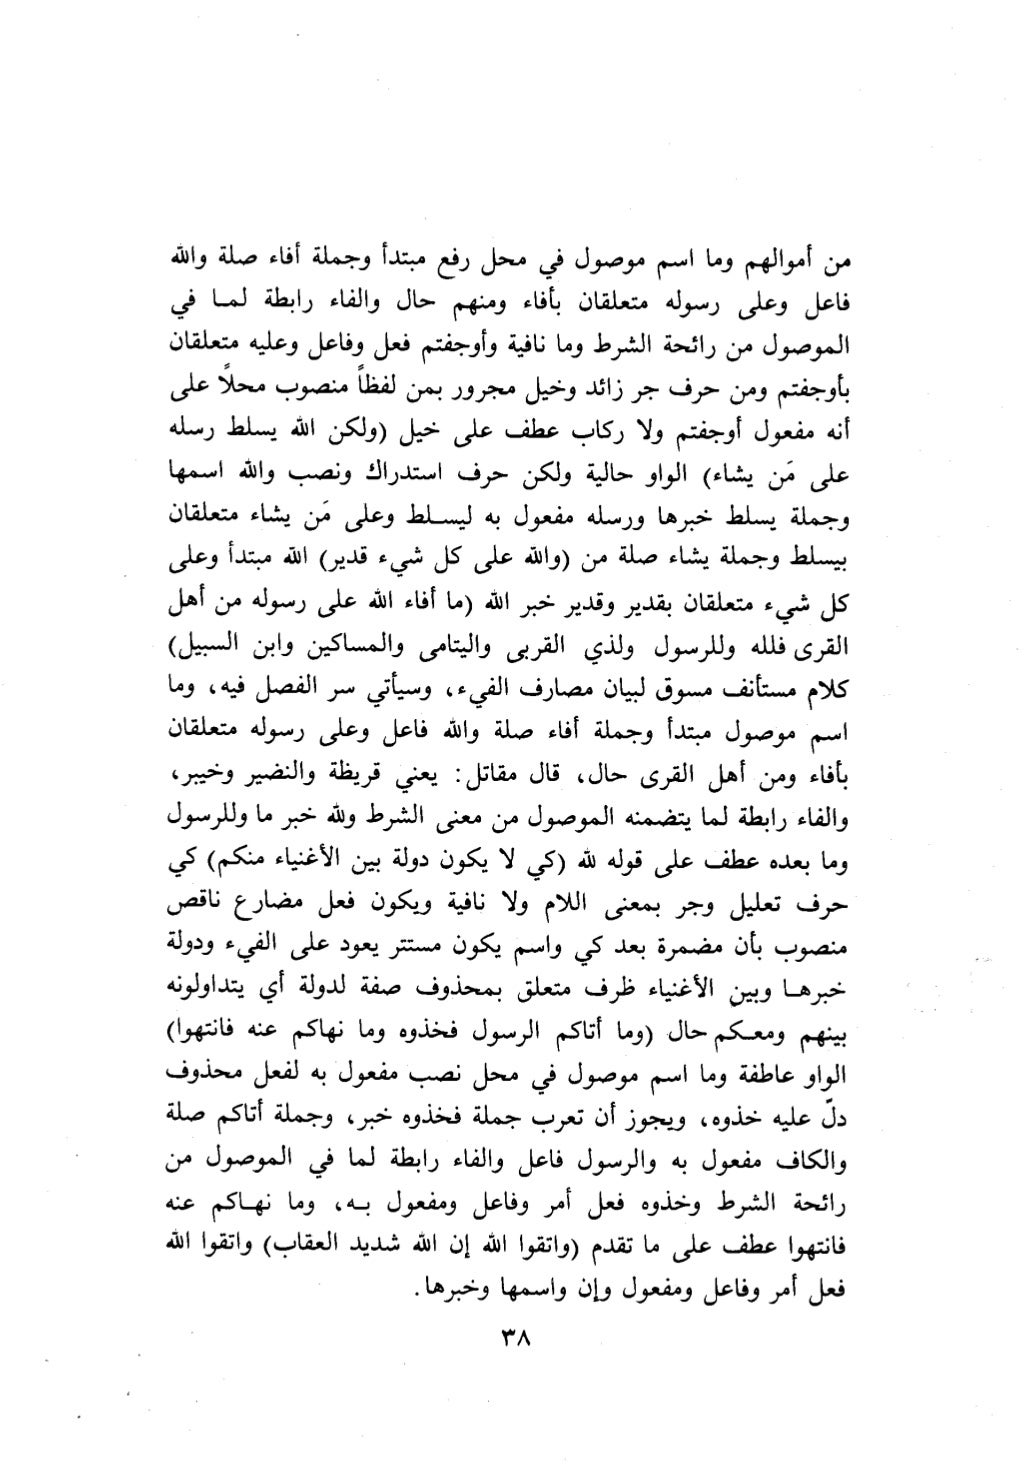 من أموالهم وما اسم موصول في محل رفع مبتدأ وجملة أفاء صلة والله
فاعل وعلى رسوله متعلقان بأفاء ومنهم حال والفاء رابطة لمـا في
الموصول من رائحة الشرط وما نافية وأوجفتم فعل وفاعل وعليه متعلقان
بأوجفتم ومن حرف جر زائد وخيل مجرور بمن لفظاً منصوب محلاً على
أنه مفعول أوجفتم ولا ركاب عطف على خيل (ولكن الله يسلط رسله
على مَن يشاء) الواو حالية ولكن حرف استدراك ونصب والله اسمها
وجملة يسلط خبرها ورسله مفعول به ليسلط وعلى مَن يشاء متعلقان
بيسلط وجملة يشاء صلة من (والله على كل شيء قدير) الله مبتدأ وعلى
كل شيء متعلقان بقدير وقدير خبر الله (ما أفاء الله على رسوله من أهل
القرى فلله وللرسول ولذي القربى واليتامى والمساكين وابن السبيل)
كلام مستأنف مسوق لبيان مصارف الفيء، وسيأتي سر الفصل فيه، وما
اسم موصول مبتدأ وجملة أفاء صلة والله فاعل وعلى رسوله متعلقان
بأفاء ومن أهل القرى حال، قال مقاتل: يعني قريظة والنضير وخيبر،
والفاء رابطة لما يتضمنه الموصول من معنى الشرط ولله خبر ما وللرسول
وما بعده عطف على قوله لله (كي لا يكون دولة بين الأغنياء منكم) كي
حرف تعليل وجر بمعنى اللام ولا نافية ويكون فعل مضارع ناقص
منصوب بأن مضمرة بعد كي واسم يكون مستتر يعود على الفيء ودولة
خبرهـا وبين الأغنياء ظرف متعلق بمحذوف صفة لدولة أي يتداولونه
بينهم ومعـكم حال (وما أتاكم الرسول فخذوه وما نهاكم عنه فانتهوا)
الواو عاطفة وما اسم موصول في محل نصب مفعول به لفعل محذوف
دلّ عليه خذوه، ويجوز أن تعرب جملة فخذوه خبر، وجملة أتاكم صلة
والكاف مفعول به والرسول فاعل والفاء رابطة لما في الموصول من
رائحة الشرط وخذوه فعل أمر وفاعل ومفعول بـه، وما نهـاكم عنه
فانتهوا عطف على ما تقدم (واتقوا الله إن الله شديد العقاب) واتقوا الله
فعل أمر وفاعل ومفعول وإن واسمها وخبرها.
٣٨